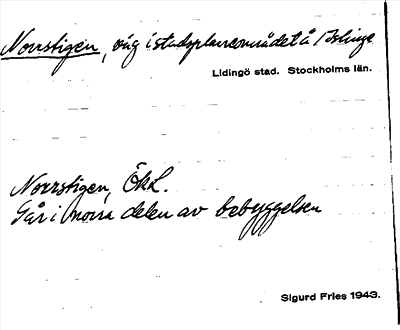 Norrstigen, väg i stadsplaneområdet å Islinge
Lidingö stad. Stockholms län.
Norrstigen, ÖkL.
Går i norra delen av bebyggelsen
Sigurd Fries 1943.